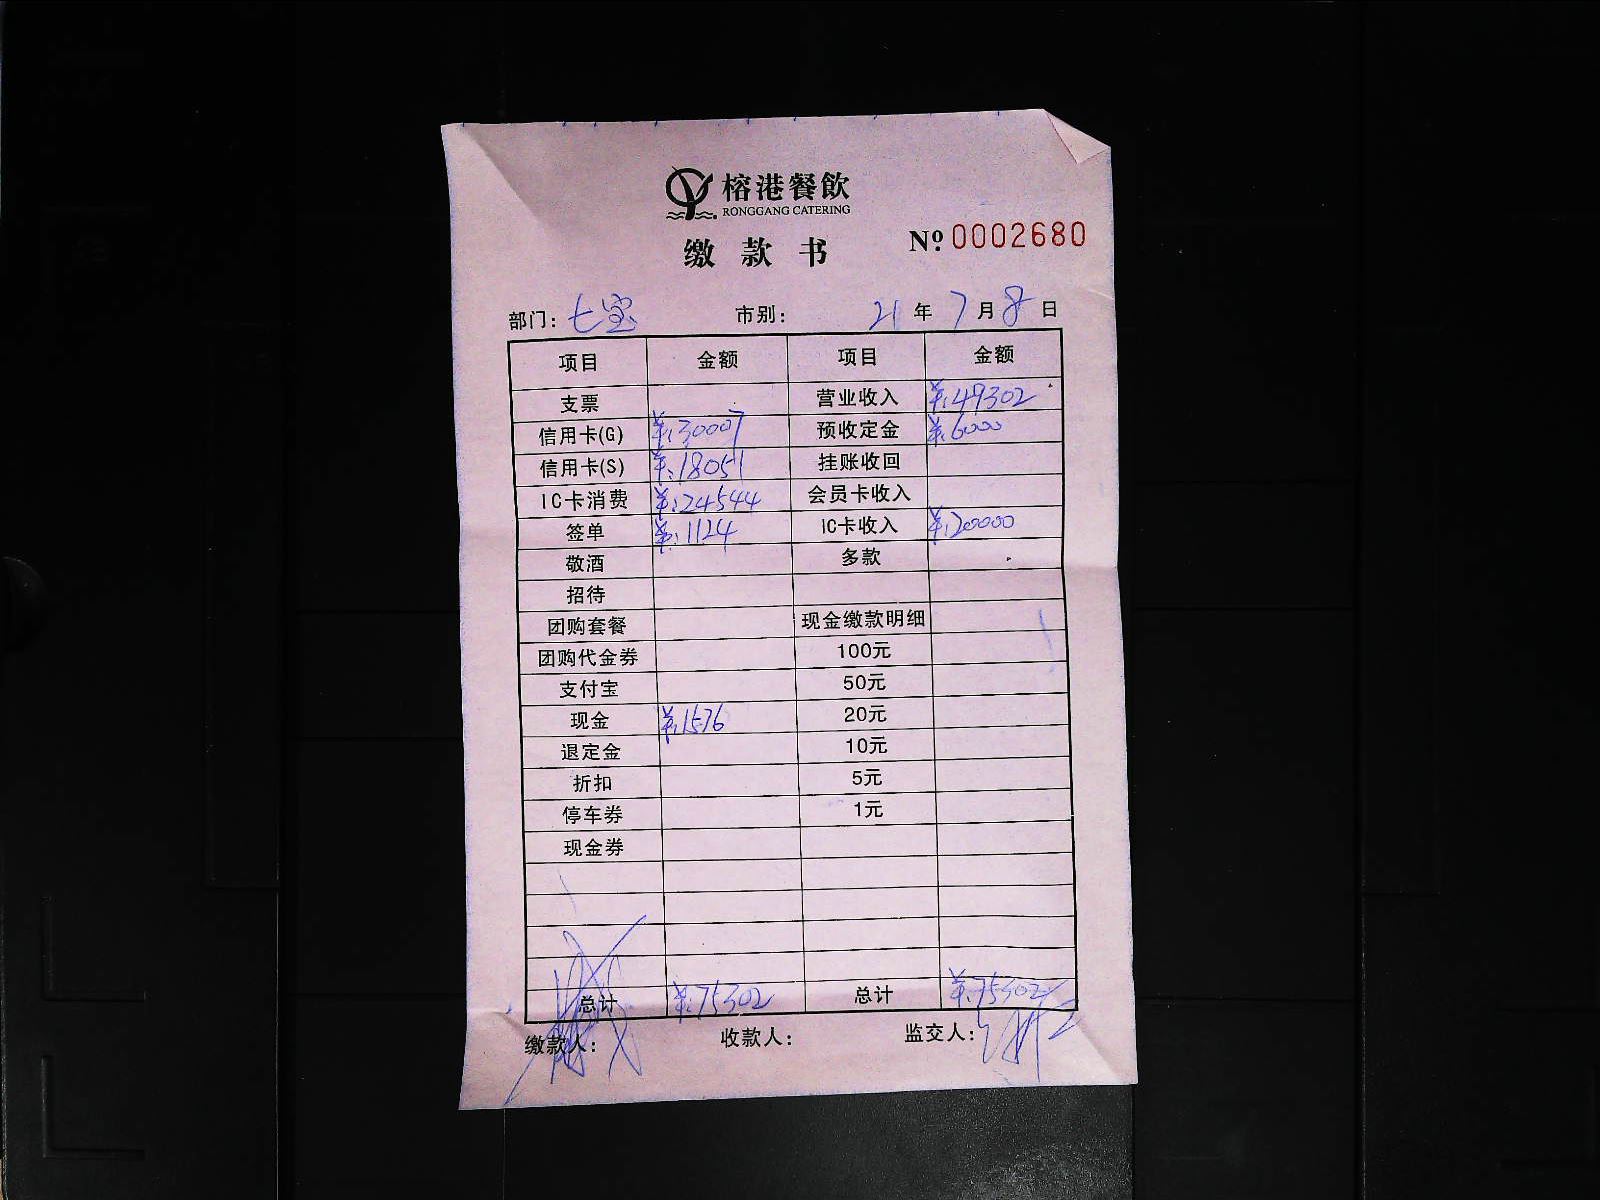 榕港餐飲
RONGGANG CATERING
缴款书 Nº 0002680
部门: 七宝 市别: 21年7月8日
项目 金额 项目 金额
支票 营业收入 ¥:49302
信用卡(G) ¥:30007 预收定金 ¥:6000
信用卡(S) ¥:18051 挂账收回
IC卡消费 ¥:24544 会员卡收入
签单 ¥:1124 IC卡收入 ¥:20000
敬酒 多款
招待
团购套餐 现金缴款明细
团购代金券 100元
支付宝 50元
现金 ¥:1576 20元
退定金 10元
折扣 5元
停车券 1元
现金券
总计 ¥:75302 总计 ¥:75302
缴款人: 收款人: 监交人: